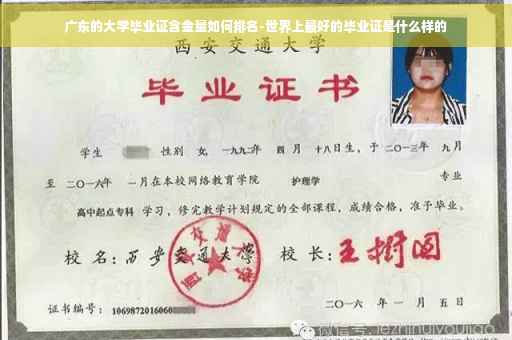 广东的大学毕业证含金量如何排名-世界上最好的毕业证是什么样的
西安交通大学
毕业证书
学生 性别 女, 一九九二年 四月 十八日生, 于 二〇一三年 九月
至 二〇一六年 一月在本校网络教育学院 护理学 专业
高中起点专科 学习, 修完教学计划规定的全部课程, 成绩合格, 准予毕业。
校名: 西安交通大学 校长: 王树国
西安交通大学
证书编号: 1069872016060
二〇一六 年 一 月 五 日
微信号: jiezhinuiyoujiao